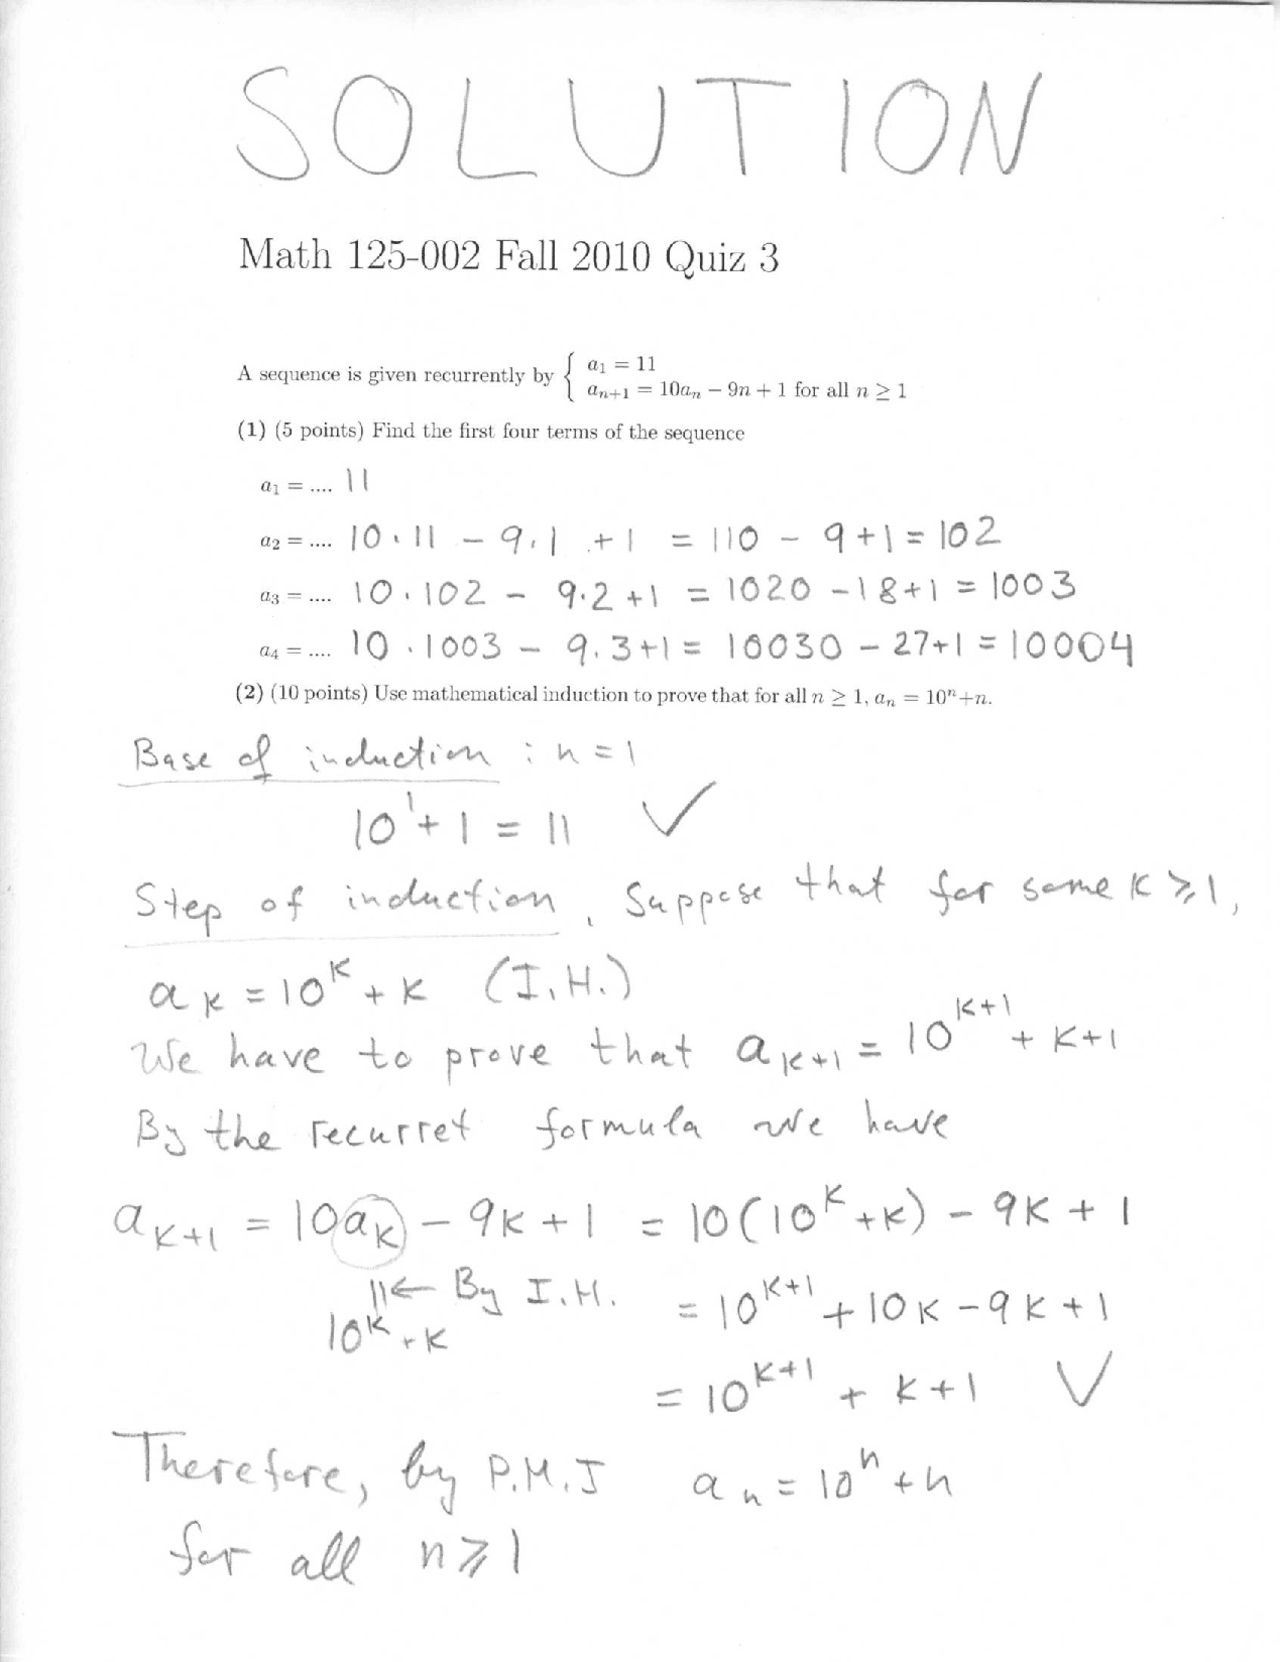 SOLUTION
Math 125-002 Fall 2010 Quiz 3
A sequence is given recurrently by { a₁ = 11
aₙ₊₁ = 10aₙ − 9n + 1 for all n ≥ 1
(1) (5 points) Find the first four terms of the sequence
a₁ = .... 11
a₂ = .... 10·11 − 9·1 + 1 = 110 − 9+1 = 102
a₃ = .... 10·102 − 9·2 +1 = 1020 −18+1 = 1003
a₄ = .... 10·1003 − 9·3+1 = 10030 − 27+1 = 10004
(2) (10 points) Use mathematical induction to prove that for all n ≥ 1, aₙ = 10ⁿ+n.
Base of induction : n=1
10¹+1 = 11 ✓
Step of induction. Suppose that for some k ⩾ 1,
aₖ = 10ᵏ + k (I.H.)
We have to prove that aₖ₊₁ = 10ᵏ⁺¹ + k+1
By the recurret formula we have
aₖ₊₁ = 10aₖ − 9k + 1 = 10(10ᵏ+k) − 9k + 1
11← By I.H. = 10ᵏ⁺¹ + 10k − 9k + 1
10ᵏ+k
= 10ᵏ⁺¹ + k+1 ✓
Therefore, by P.M.I aₙ = 10ⁿ+n
for all n ⩾ 1